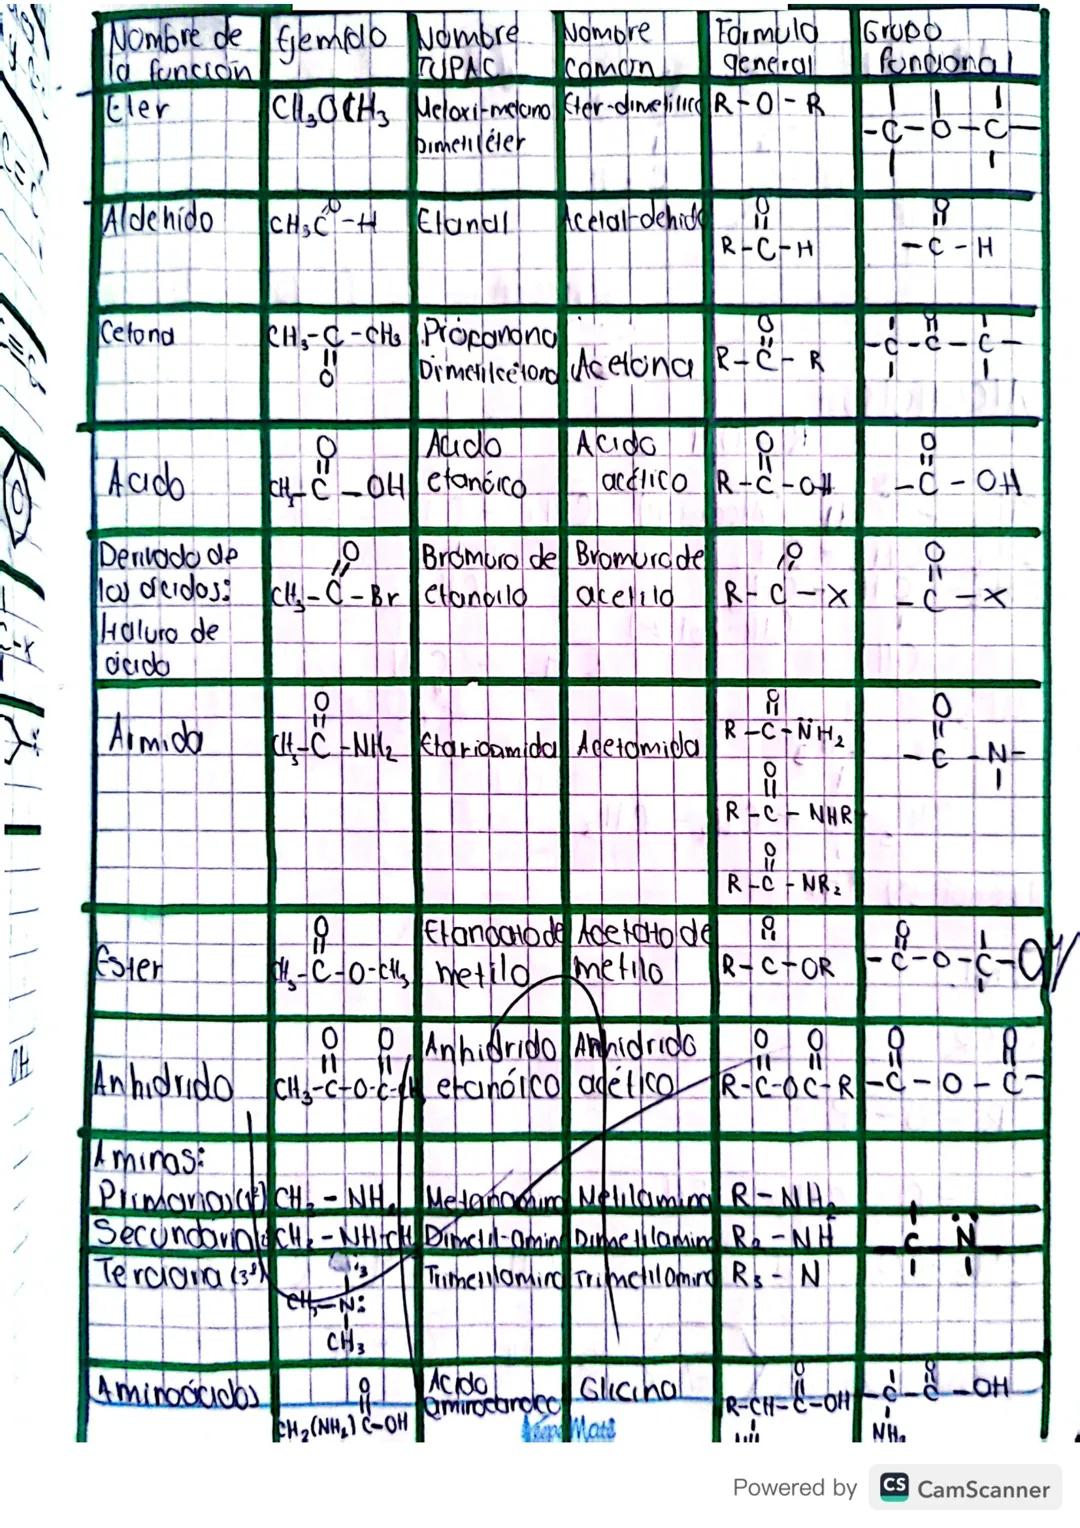 Nombre de la función | Ejemplo | Nombre IUPAC | Nombre común | Fórmula general | Grupo funcional
Eter | CH₃OCH₃ | Metoxi-metano Dimetiléter | Eter-dimetilico | R-O-R | -C-O-C-
Aldehido | CH₃C-H O | Etanal | Acetal-dehido | O R-C-H | O -C-H
Cetona | CH₃-C-CH₃ O | Propanona Dimetilcetona | Acetona | O R-C-R | O -C-C-C-
Acido | O CH₃-C-OH | Acido etanóico | Acido acético | O R-C-OH | O -C-OH
Derivado de los ácidos: Haluro de ácido | O CH₃-C-Br | Bromuro de etanoilo | Bromuro de acetilo | O R-C-X | O -C-X
Amida | O CH₃-C-NH₂ | Etanoamida | Acetamida | O R-C-N̈H₂ O R-C-NHR O R-C-NR₂ | O -C-N-
Ester | O CH₃-C-O-CH₃ | Etanoato de metilo | Acetato de metilo | O R-C-OR | O -C-O-C-
Anhidrido | O O CH₃-C-O-C-CH | Anhidrido etanóico | Anhidrido acético | O O R-C-OC-R | O O -C-O-C-
Aminas:
Primarias (1ª) | CH₃-NH₂ | Metanamina | Metilamina | R-NH₂
Secundaria | CH₃-NH-CH | Dimetil-amin | Dimetilamina | R₂-NH | C N
Terciaria (3ª) | CH₃-N: CH₃ | Trimetilamina | Trimetilamina | R₃-N
Aminoácidos | O CH₂(NH₂)C-OH | Acido | Glicina | O R-CH-C-OH | O -C-C-OH NH₂
Powered by CS CamScanner